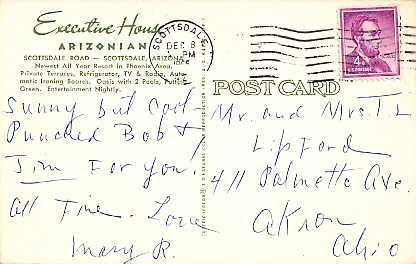 Executive House
ARIZONIAN
SCOTTSDALE ROAD — SCOTTSDALE, ARIZONA
Newest All Year Resort in Phoenix Area.
Private Terraces, Refrigerator, TV & Radio, Auto-
matic Ironing Boards. Oasis with 2 Pools, Putting
Green. Entertainment Nightly.
SCOTTSDALE
DEC 8
PM
4¢
U.S. POSTAGE
POST CARD
Sunny but cool
Punched Bob &
Jim For you!
All Fine. Love
Mary R.
Mr. and Mrs. T. L
Lipford
411 Palmetto Ave.
Akron
Ohio